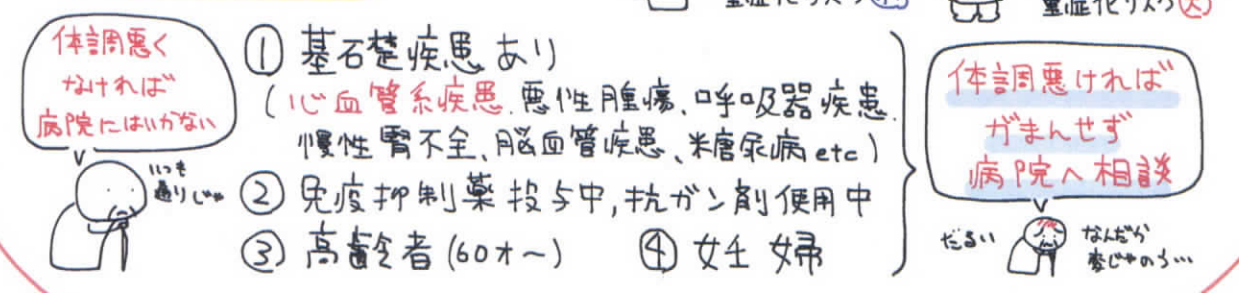 重症化リスク小
重症化リスク大
体調悪く
なければ
病院にはいかない
いつも
通りじゃ
① 基礎疾患あり
(心血管系疾患、悪性腫瘍、呼吸器疾患、
慢性腎不全、脳血管疾患、糖尿病etc)
② 免疫抑制薬投与中,抗ガン剤使用中
③ 高齢者(60才~) ④ 妊婦
体調悪ければ
がまんせず
病院へ相談
だるい
なんだか
変じゃのう…